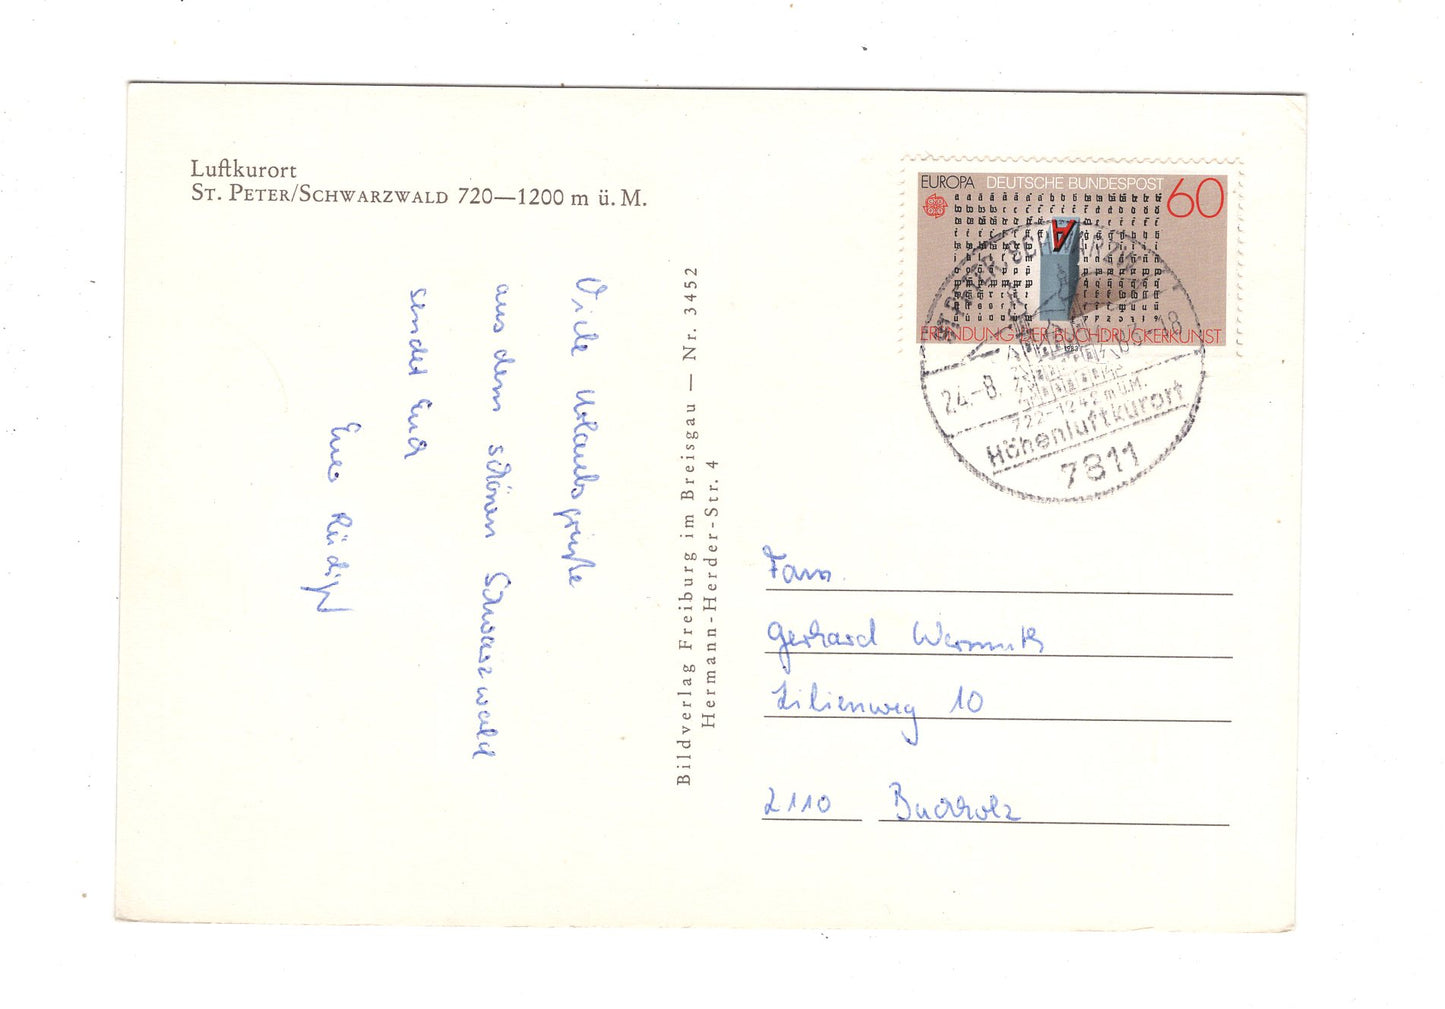 Luftkurort
ST. PETER/SCHWARZWALD 720—1200 m ü. M.
Viele Urlaubsgrüße
aus dem schönen Schwarzwald
sendet Euch
Euer Rüdiger
Bildverlag Freiburg im Breisgau — Nr. 3452
Hermann-Herder-Str. 4
EUROPA DEUTSCHE BUNDESPOST 60
ERFINDUNG DER BUCHDRUCKERKUNST
ST. PETER, SCHWARZW
24.-8. -18
722-1242 m ü.M.
Höhenluftkurort
7811
Fam.
Gerhard Wermuth
Lilienweg 10
2110 Buchholz